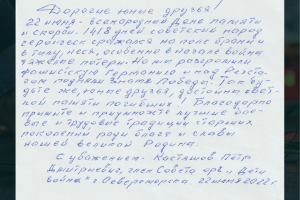 Дорогие юные друзья!
22 июня - всенародный День памяти
и скорби. 1418 дней советский народ
героически сражался на поле брани и
в тылу, неся, особенно в начале войны
тяжёлые потери. Но мы разгромили
фашистскую Германию и над Рейхста-
гом подняли Знамя Победы! Так бу-
дьте же, юные друзья, достойны свет-
лой памяти погибших! Благодарно
примите и приумножьте лучшие бое-
вые и трудовые традиции старших
поколений ради блага и славы
нашей великой Родины.
С уважением - Костяшов Пётр
Дмитриевич, член Совета орг. "Дети
войны" г. Североморска. 22 июня 2022 г.